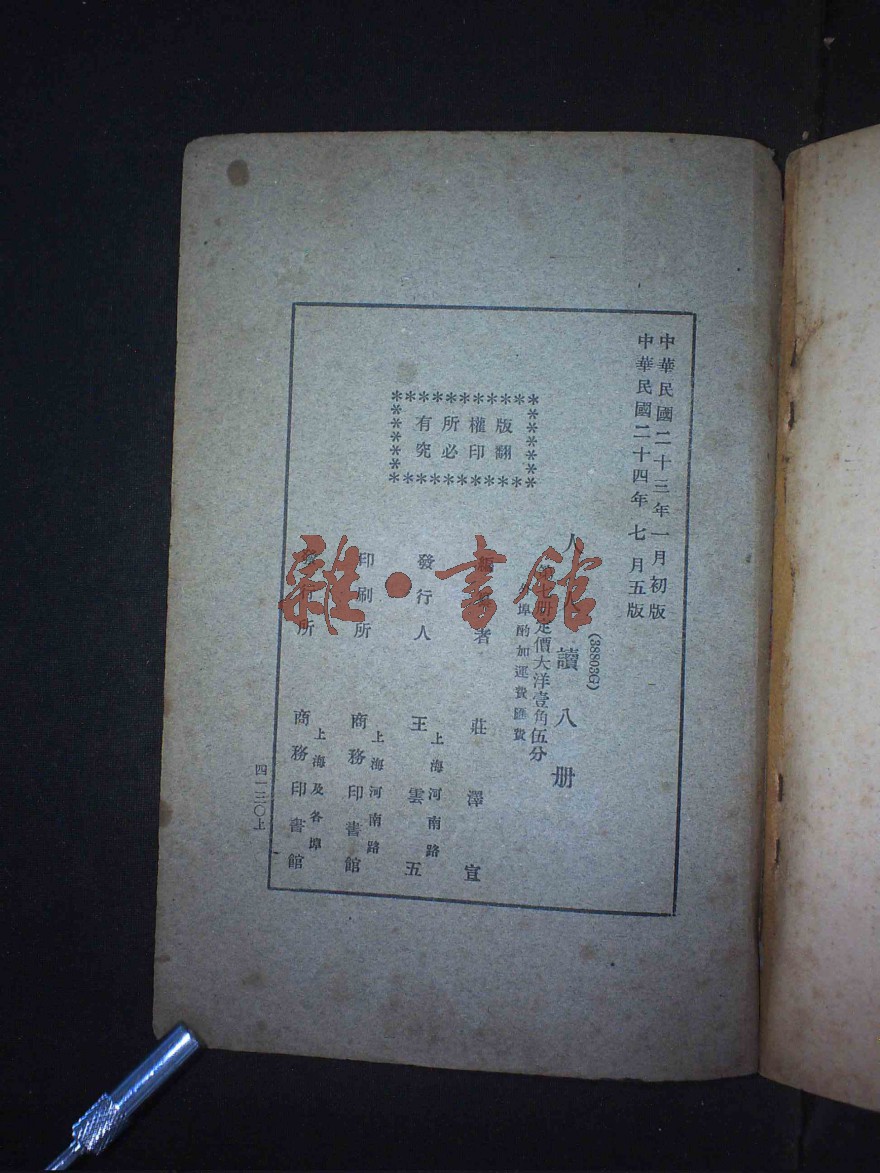 中華民國二十三年一月初版
中華民國二十四年七月五版
(38803G)
人人讀八册
册定價大洋壹角伍分
外埠酌加運費匯費
版權所有
翻印必究
編者 莊澤宣
發行人 上海河南路 王雲五
印刷所 上海河南路 商務印書館
發行所 上海及各埠 商務印書館
四一三〇上
雜·書館